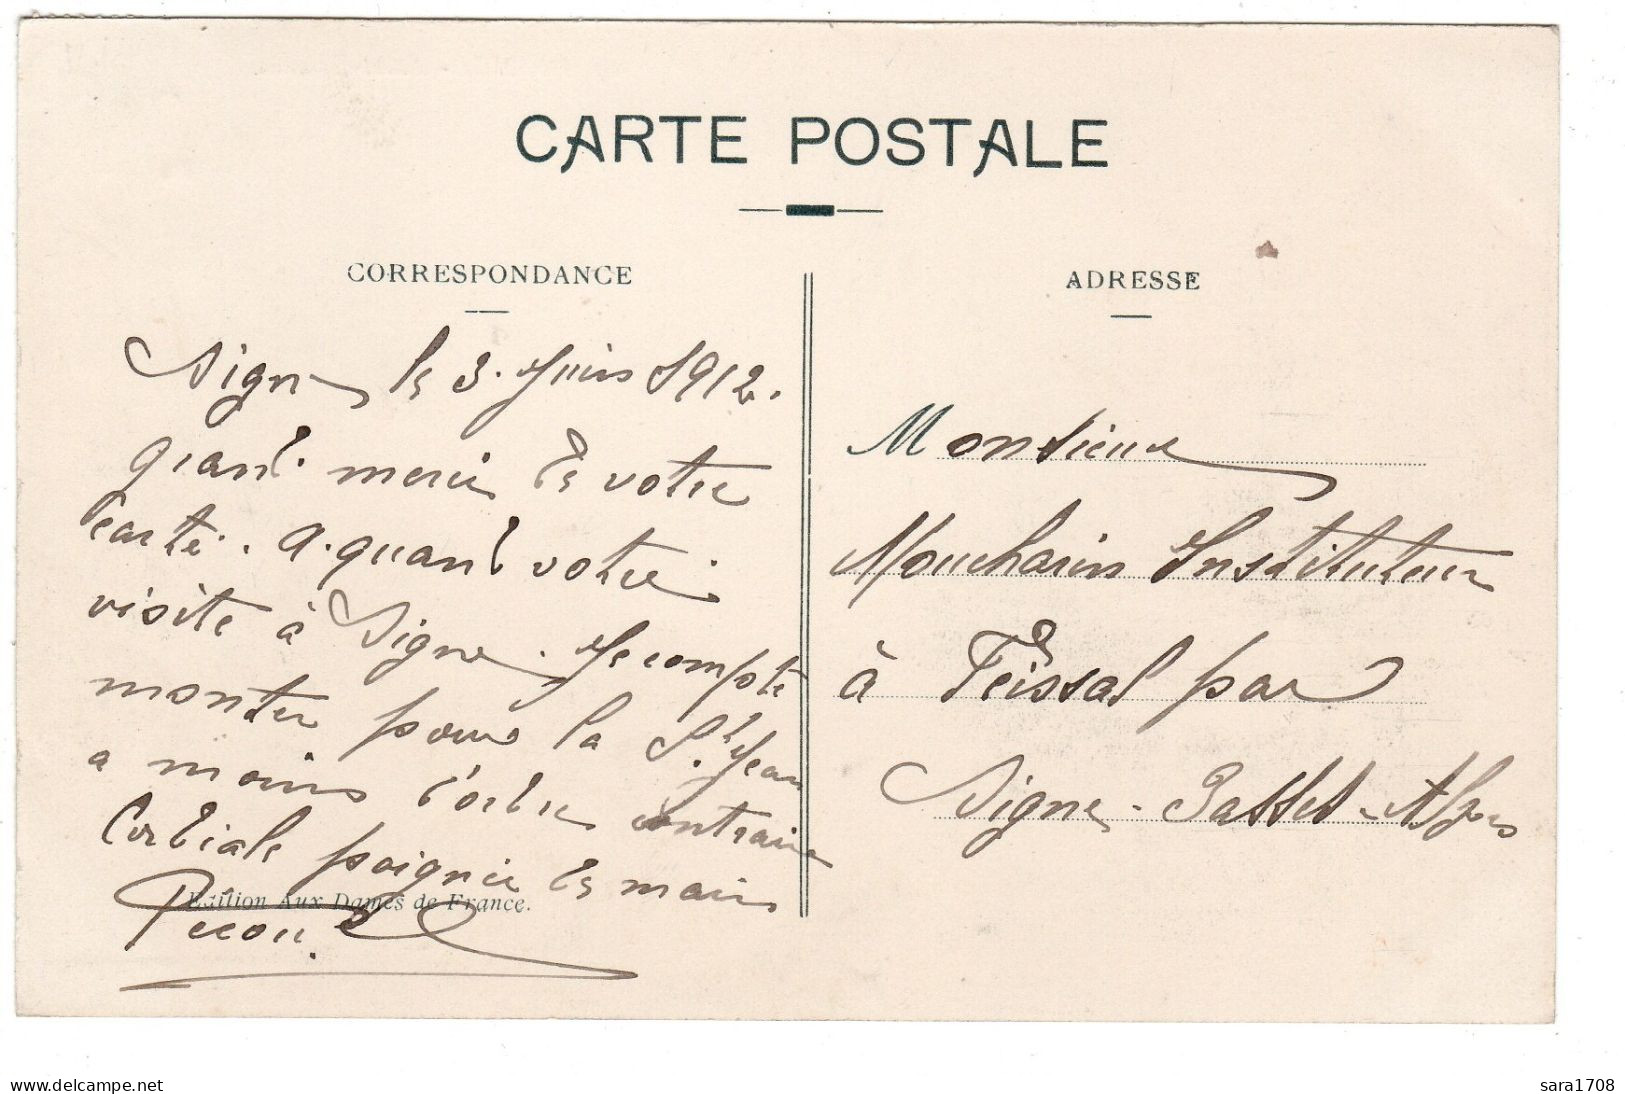 CARTE POSTALE
CORRESPONDANCE
Digne le 3 Juin 1912.
Grand merci de votre
carte. A quand votre
visite à Digne. Je compte
monter pour la St Jean
a moins d'ordre contraire
Cordiale poignée de main
Edition Aux Dames de France.
ADRESSE
Monsieur
Moucharin Instituteur
à Feissal par
Digne - Basses-Alpes
delcampe.net
sara1708